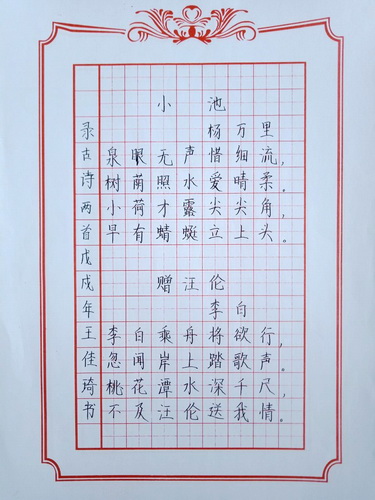 小池
杨万里
泉眼无声惜细流，
树荫照水爱晴柔。
小荷才露尖尖角，
早有蜻蜓立上头。
赠汪伦
李白
李白乘舟将欲行，
忽闻岸上踏歌声。
桃花潭水深千尺，
不及汪伦送我情。
录古诗两首戊戌年王佳琦书